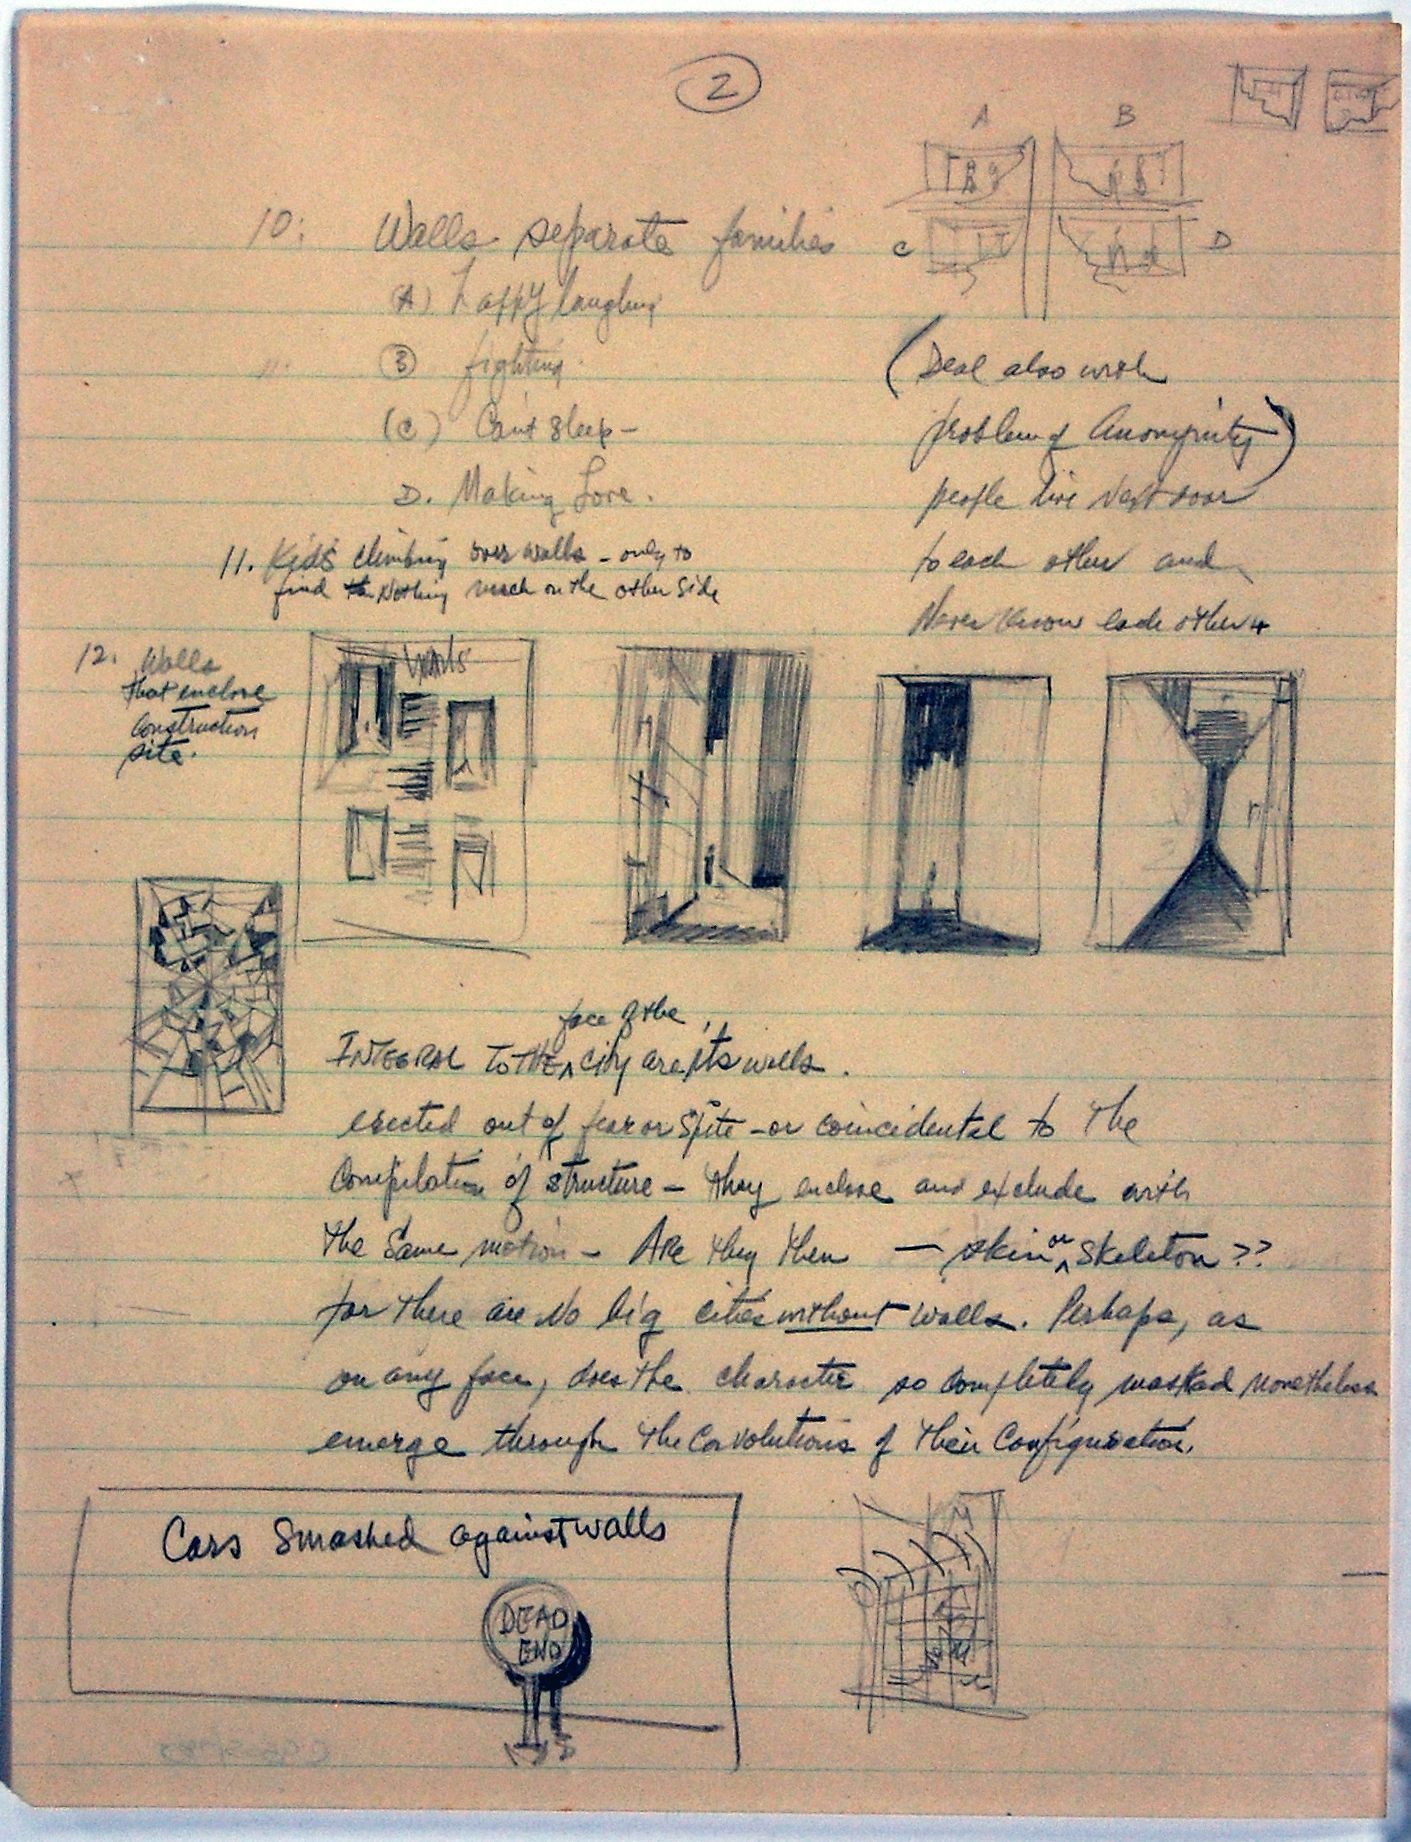 2
A B
10: Walls separate families
C D
(A) happy laughing
(B) fighting.
(C) Can't sleep –
D. Making Love.
(Deal also with
problem of Anonymity)
people live next door
to each other and
Never know each other
11. Kids climbing over walls – only to
find Nothing much on the other side
12. Walls
that enclose
construction
site.
Walls
face of the
INTEGRAL TO THE ^ City are its walls.
erected out of fear or spite – or coincidental to the
compilation of structure – they enclose and exclude with
the same motion – Are they then — skin or ^ skeleton ??
for there are no big cities without walls. Perhaps, as
on any face, does the character so completely masked nonetheless
emerge through the convolutions of their configuration.
Cars Smashed against walls
DEAD
END